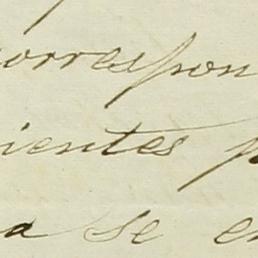 correspon
ientes p
a se en